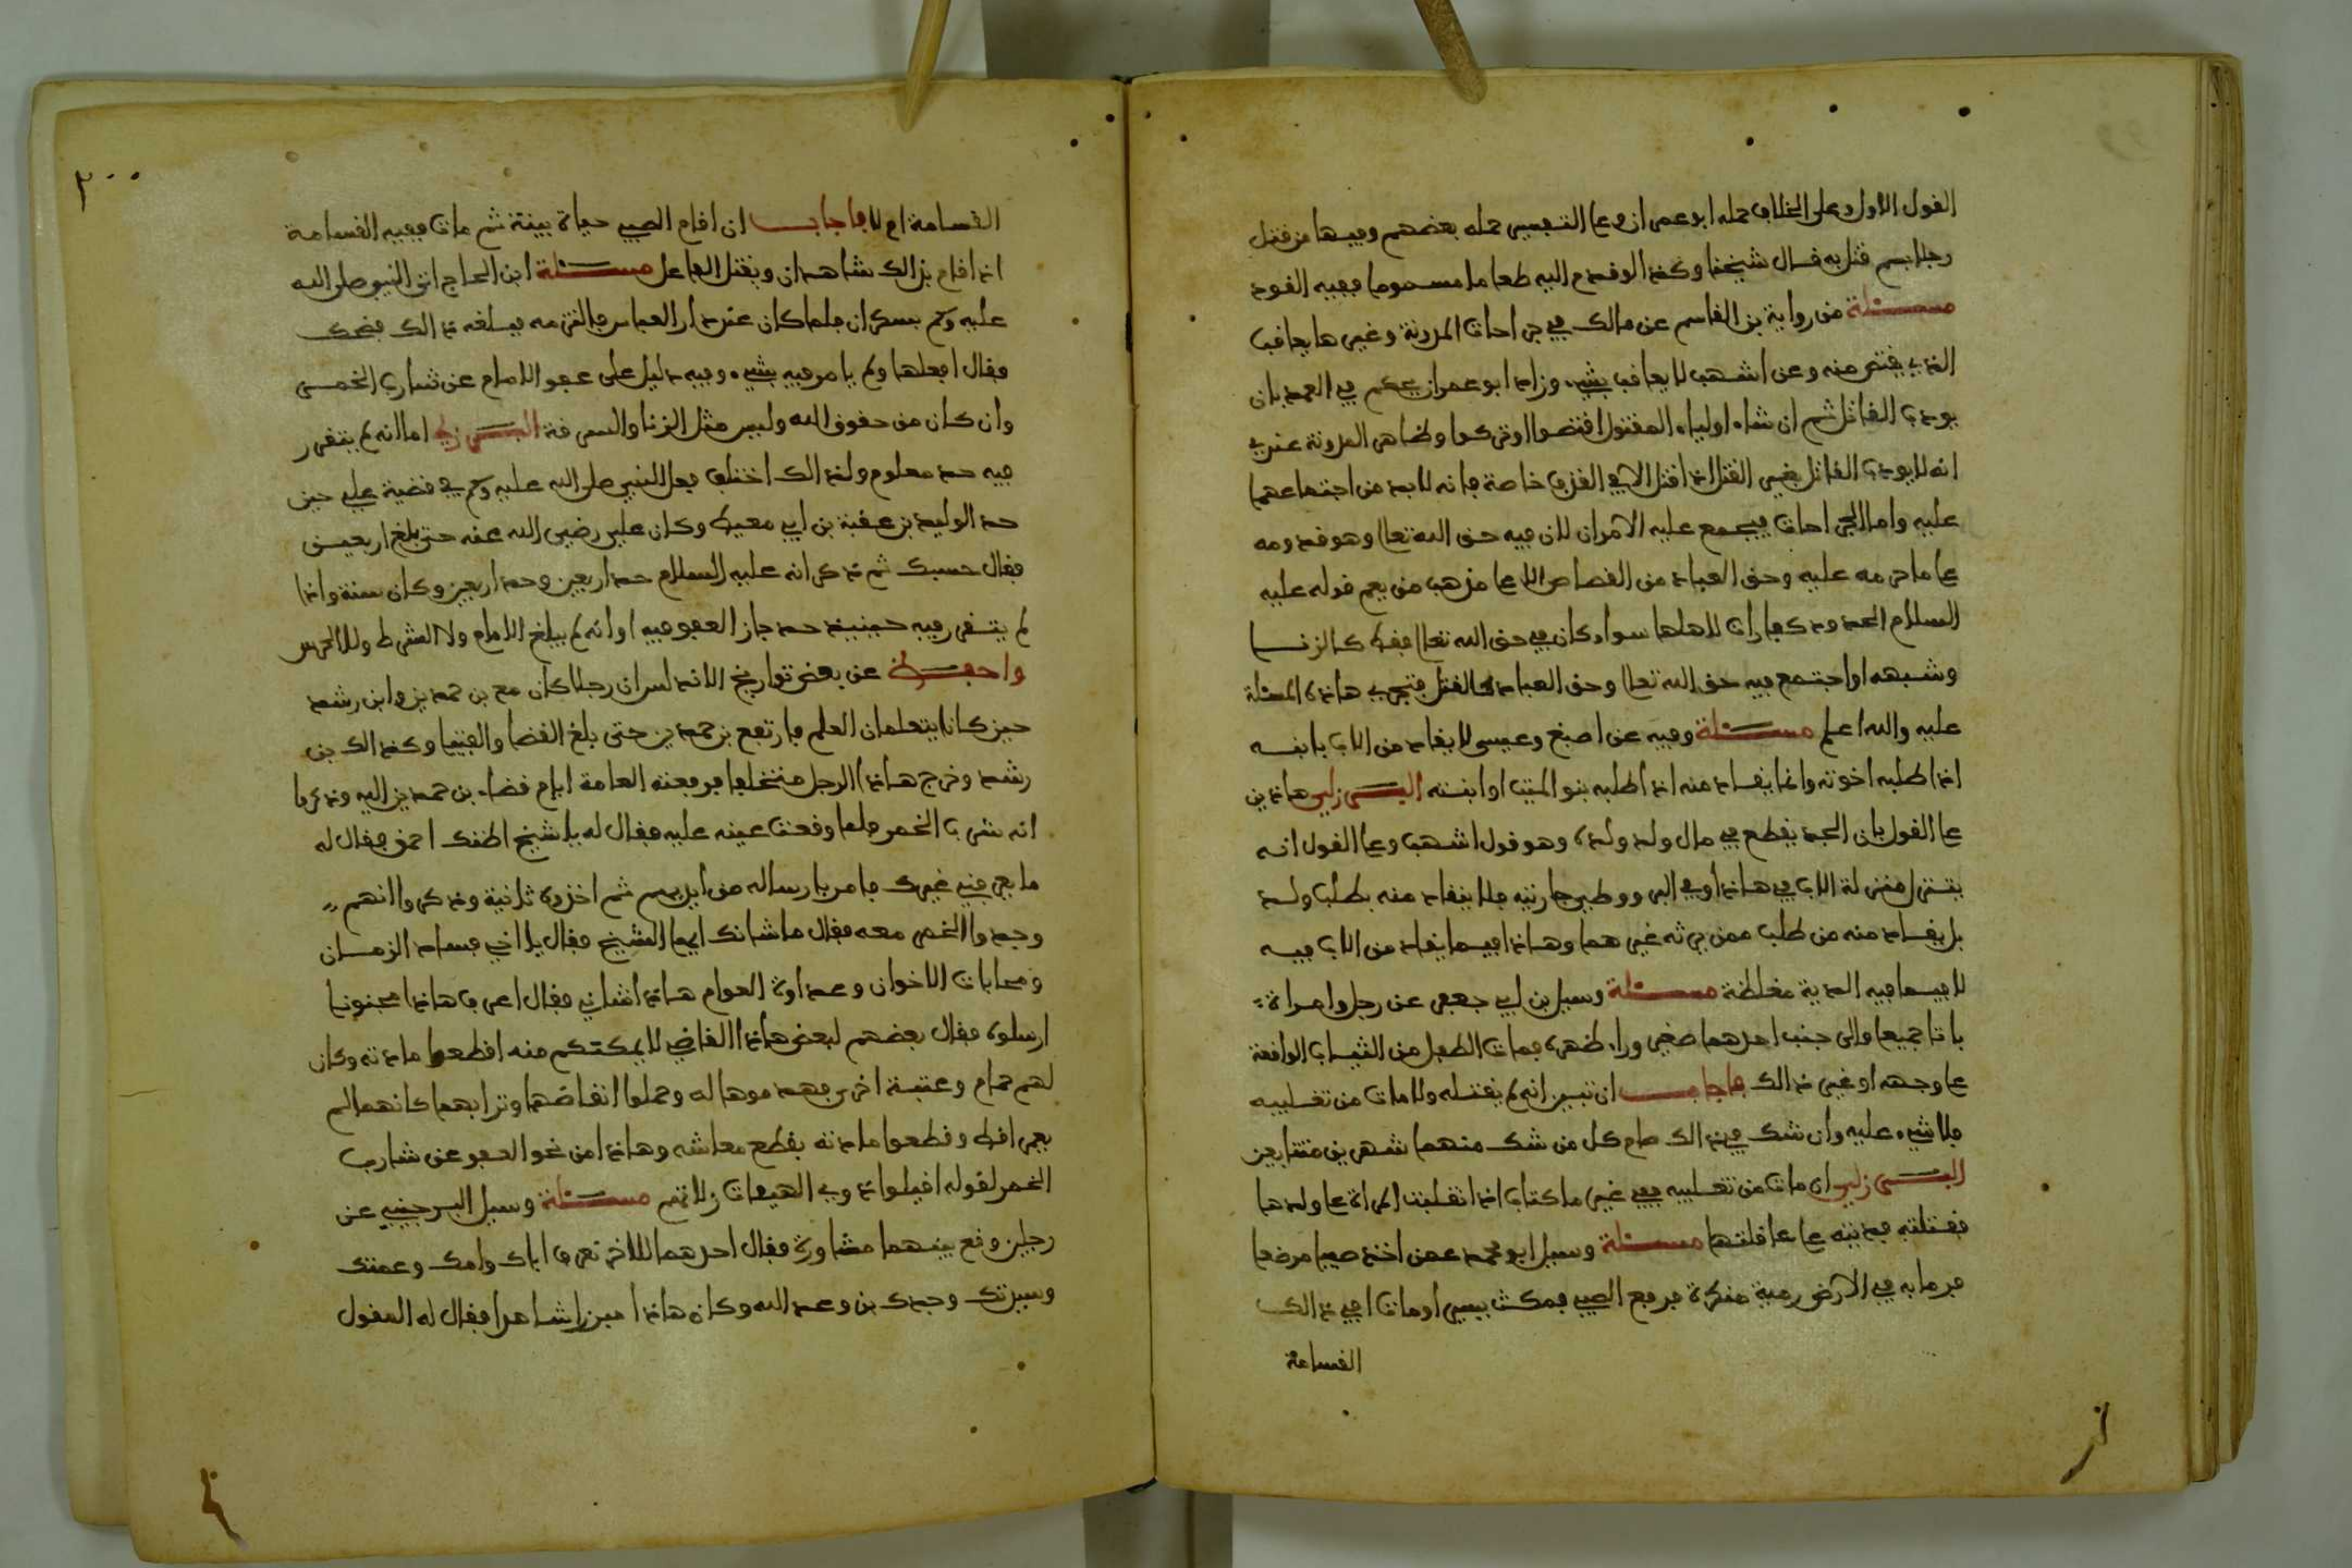 القول الاول وعلى الخلاف حمله ابو عمران وعلى التفسير حمله بعضهم وفيها من قتل
رجلا بسم قتل به قال شيخنا وكذا لو قدم اليه طعاما مسموما ففيه القود
مسئلة من رواية بن القاسم عن مالك في جراحات المدونة وغيرها يعاقب
الذي يقتص منه وعن اشهب لا يعاقب بشيء وزاد ابو عمران يحكم في العمد بان
يودي القاتل ثم ان شاء اولياء المقتول اقتصوا او تركوا وظاهر المدونة عندي
انه لا يودي القاتل بغير القتل اذا قتل الا في القذف خاصة فانه لا بد من اجتماعهما
عليه واما الجراحات فيجمع عليه الامران لان فيه حق الله تعالى وهو قدومه
على ما حرمه عليه وحق العباد من القصاص الا على مذهب من يعم قوله عليه
السلام الحدود كفارات لاهلها سواء كان في حق الله تعالى فقط كالزنا
وشبهه او اجتمع فيه حق الله تعالى وحق العباد كالقتل فتجري هاذه المسئلة
عليه والله اعلم مسئلة وفيه عن اصبغ وعيسى لا يقاد من الاب بابنه
اذا طلبه اخوته وانما يقاد منه اذا طلبه بنو الميت او ابنته البرزلي هاذين
على القول بان الجد يقطع في مال ولد ولده وهو قول اشهب وعلى القول انه
يتنزل منزلة الاب في هاذا وفي البر ووطي جاريته فلا يقاد منه بطلب ولد
بل يقاد منه من طلب ممن يرثه غيرهما وهاذا فيما يقاد من الاب فيه
لا فيما فيه الدية مغلظة مسئلة وسيل بن ابي جعفر عن رجل وامراة
باتا جميعا والى جنب احدهما صغير وراء ظهره فمات الطفل من الثياب الواقعة
على وجهه او غير ذالك فاجاب ان تبين انه لم يقتله ولا مات من تقلبه
فلا شيء عليه وان شك في ذالك صام كل من شك منهما شهرين متتابعين
البرزلي ان مات من تقلبه ففي غير ما كتاب اذا انقلبت المراة على ولدها
فقتلته فديته على عاقلتها مسئلة وسيل ابو محمد عمن اخذ صبيا مرضعا
فرما به في الارض رمية منكرة فرفع الصبي فمكث يسيرا ومات افي ذالك
القسامة
٢٠٠
القسامة ام لا فاجاب ان اقام الصبي حياة بينة ثم مات ففيه القسامة
اذا اقام بذالك شاهدان ويقتل الفاعل مسئلة ابن الحاج اتى النبي صلى الله
عليه وسلم بسكران فلما كان عند دار العباس فالتزمه فبلغه ذالك فضحك
فقال افعلها ولم يامر فيه بشيء وفيه دليل على عفو الامام عن شارب الخمر
وان كان من حقوق الله وليس مثل الزنا والسرقة البرزلي اما انه لم يتقرر
فيه حد معلوم ولذالك اختلف فعل النبي صلى الله عليه وسلم في قضية علي حين
حد الوليد بن عقبة بن ابي معيط وكان علي رضي الله عنه حتى بلغ اربعين
فقال حسبك ثم ذكر انه عليه السلام حد اربعين وحد اربعين وكان سنة واذا
لم يتقرر فيه حينيذ حد جاز العفو فيه او انه لم يبلغ الامام ولا الشرط ولا الحرس
واحفظ عن بعض تواريخ الاندلس ان رجلا كان مع بن حمدين وابن رشد
حين كانا يتعلمان العلم فارتفع بن حمدين حتى بلغ القضا والفتيا وكذالك بن
رشد وخرج هاذا الرجل متخلفا فرفعته العامة ايام قضاء بن حمدين اليه وذكروا
انه شرب الخمر فلما وقعت عينه عليه فقال له يا شيخ اظنك احمق فقال له
ما يعرفني غيرك فامر بارساله من ايديهم ثم اخذوه ثانية وذكروا انهم
وجدوا الخمر معه فقال ما شانك ايها الشيخ فقال يا اخي فساد الزمان
ومحابات الاخوان وعداوة العوام هاذا شاني فقال اعرف هاذا مجنونا
ارسلوه فقال بعضهم لبعض هاذا القاضي لا يمكنكم منه اقطعوا مادته وكان
لهم حمام وعتبة اخرى فهدموها له وحملوا انقاضهما وترابهما كانهما لم
يعمرا قط وقطعوا مادته بقطع معاشه وهاذا من نحو العفو عن شارب
الخمر لقوله اقيلوا ذوي الهيئات زلاتهم مسئلة وسيل البرجيني عن
رجلين وقع بينهما مشاورة فقال احدهما للاخر تعرف اباك وامك وعمتك
وسيرتك وجدك بن وعد الله وكان هاذا مبرزا شاهدا فقال له المقول